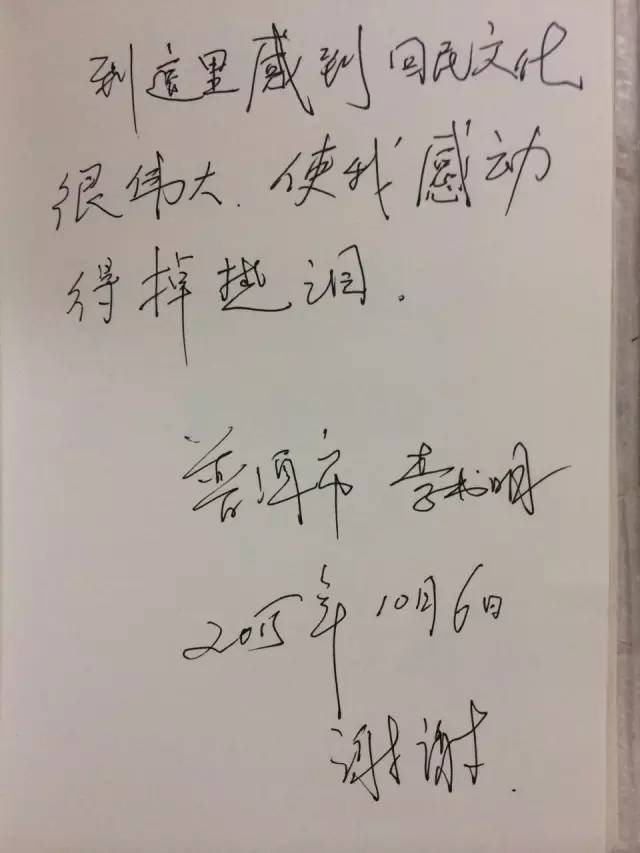 到這里感到回民文化
很伟大.使我感动
得掉热泪.
普洱市 李书明
2015年10月6日
谢谢.